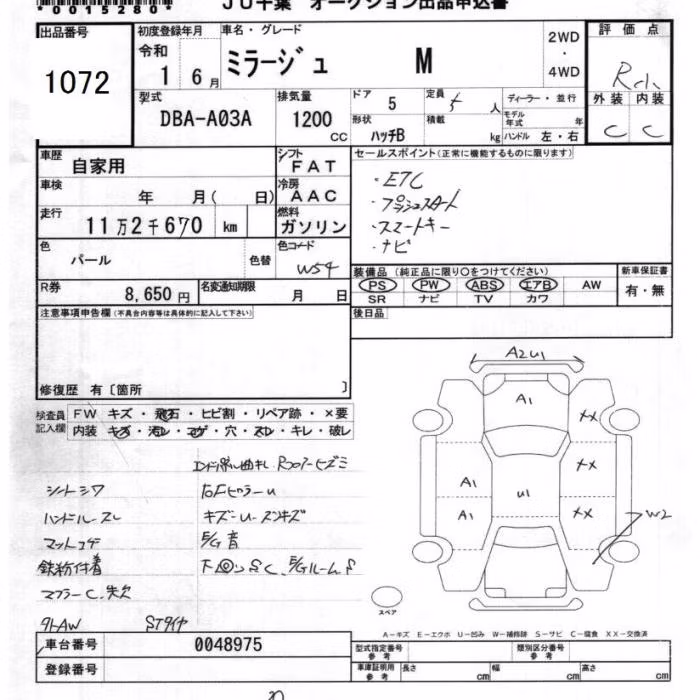 00152804
JU千葉 オークション出品申込書
出品番号 初度登録年月 車名・グレード 評価点
1072 令和 1 6月 ミラージュ M 2WD・4WD
型式 DBA-A03A 排気量 1200 CC ドア 5 定員 5 人 ディーラー・並行 外装 内装
形状 ハッチB 積載 kg モデル年式 年 ハンドル 左・右 C C
車歴 自家用 シフト FAT セールスポイント(正常に機能するものに限ります)
車検 年 月( 日) 冷房 AAC ・ETC
・プッシュスタート
走行 11万2千670 km 燃料 ガソリン ・スマートキー
・ナビ
色 パール 色替 色コード W54
装備品(純正品に限り○をつけてください) 新車保証書
R券 8,650円 名変通知期限 月 日 PS PW ABS エアB AW 有・無
SR ナビ TV カワ
注意事項申告欄(不具合内容等は具体的に記入して下さい) 後日品
修復歴 有〔箇所 〕
検査員記入欄 FW キズ・飛石・ヒビ割・リペア跡・×要
内装 キズ・汚レ・コゲ・穴・スレ・キレ・破レ
A2U1
A1 XX
A1 U1 XX
A1 XX W2
シートシワ
ハンドルスレ キズ-U-ズンキズ
マットコゲ E/G音
鉄粉付着
マフラーC.先欠
外AW STタイヤ
スペア
A-キズ E-エクボ U-凹み W-補修跡 S-サビ C-腐食 XX-交換済
車台番号 0048975 型式指定番号 参考 類別区分番号 参考
登録番号 車庫証明用 参考 長さ cm 幅 cm 高さ cm